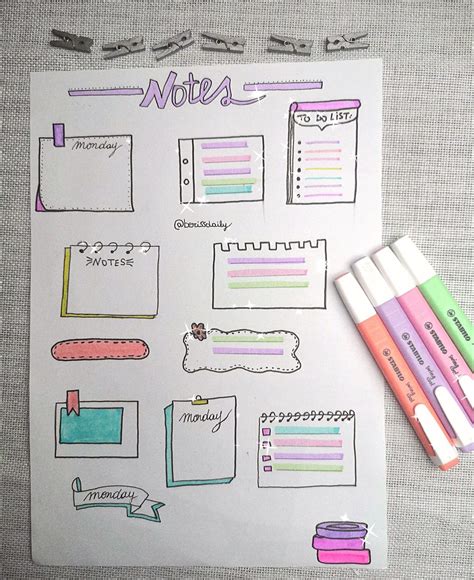 Notes
TO DO LIST:
monday
@berissdaily
NOTES
monday
monday
STABILO
STABILO
STABILO
STABILO